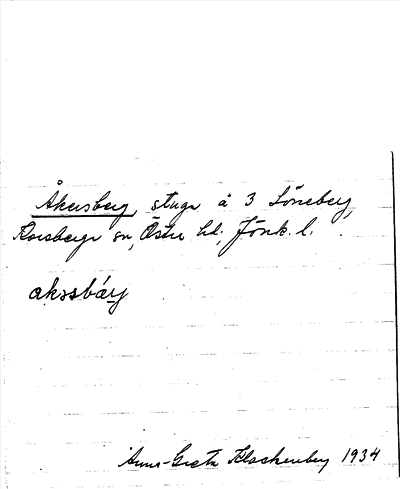 Åkersberg, stuga å 3 Löneberg,
Korsberga sn, Östra hd, Jönk. l.
Anna-Greta Klackenberg 1934